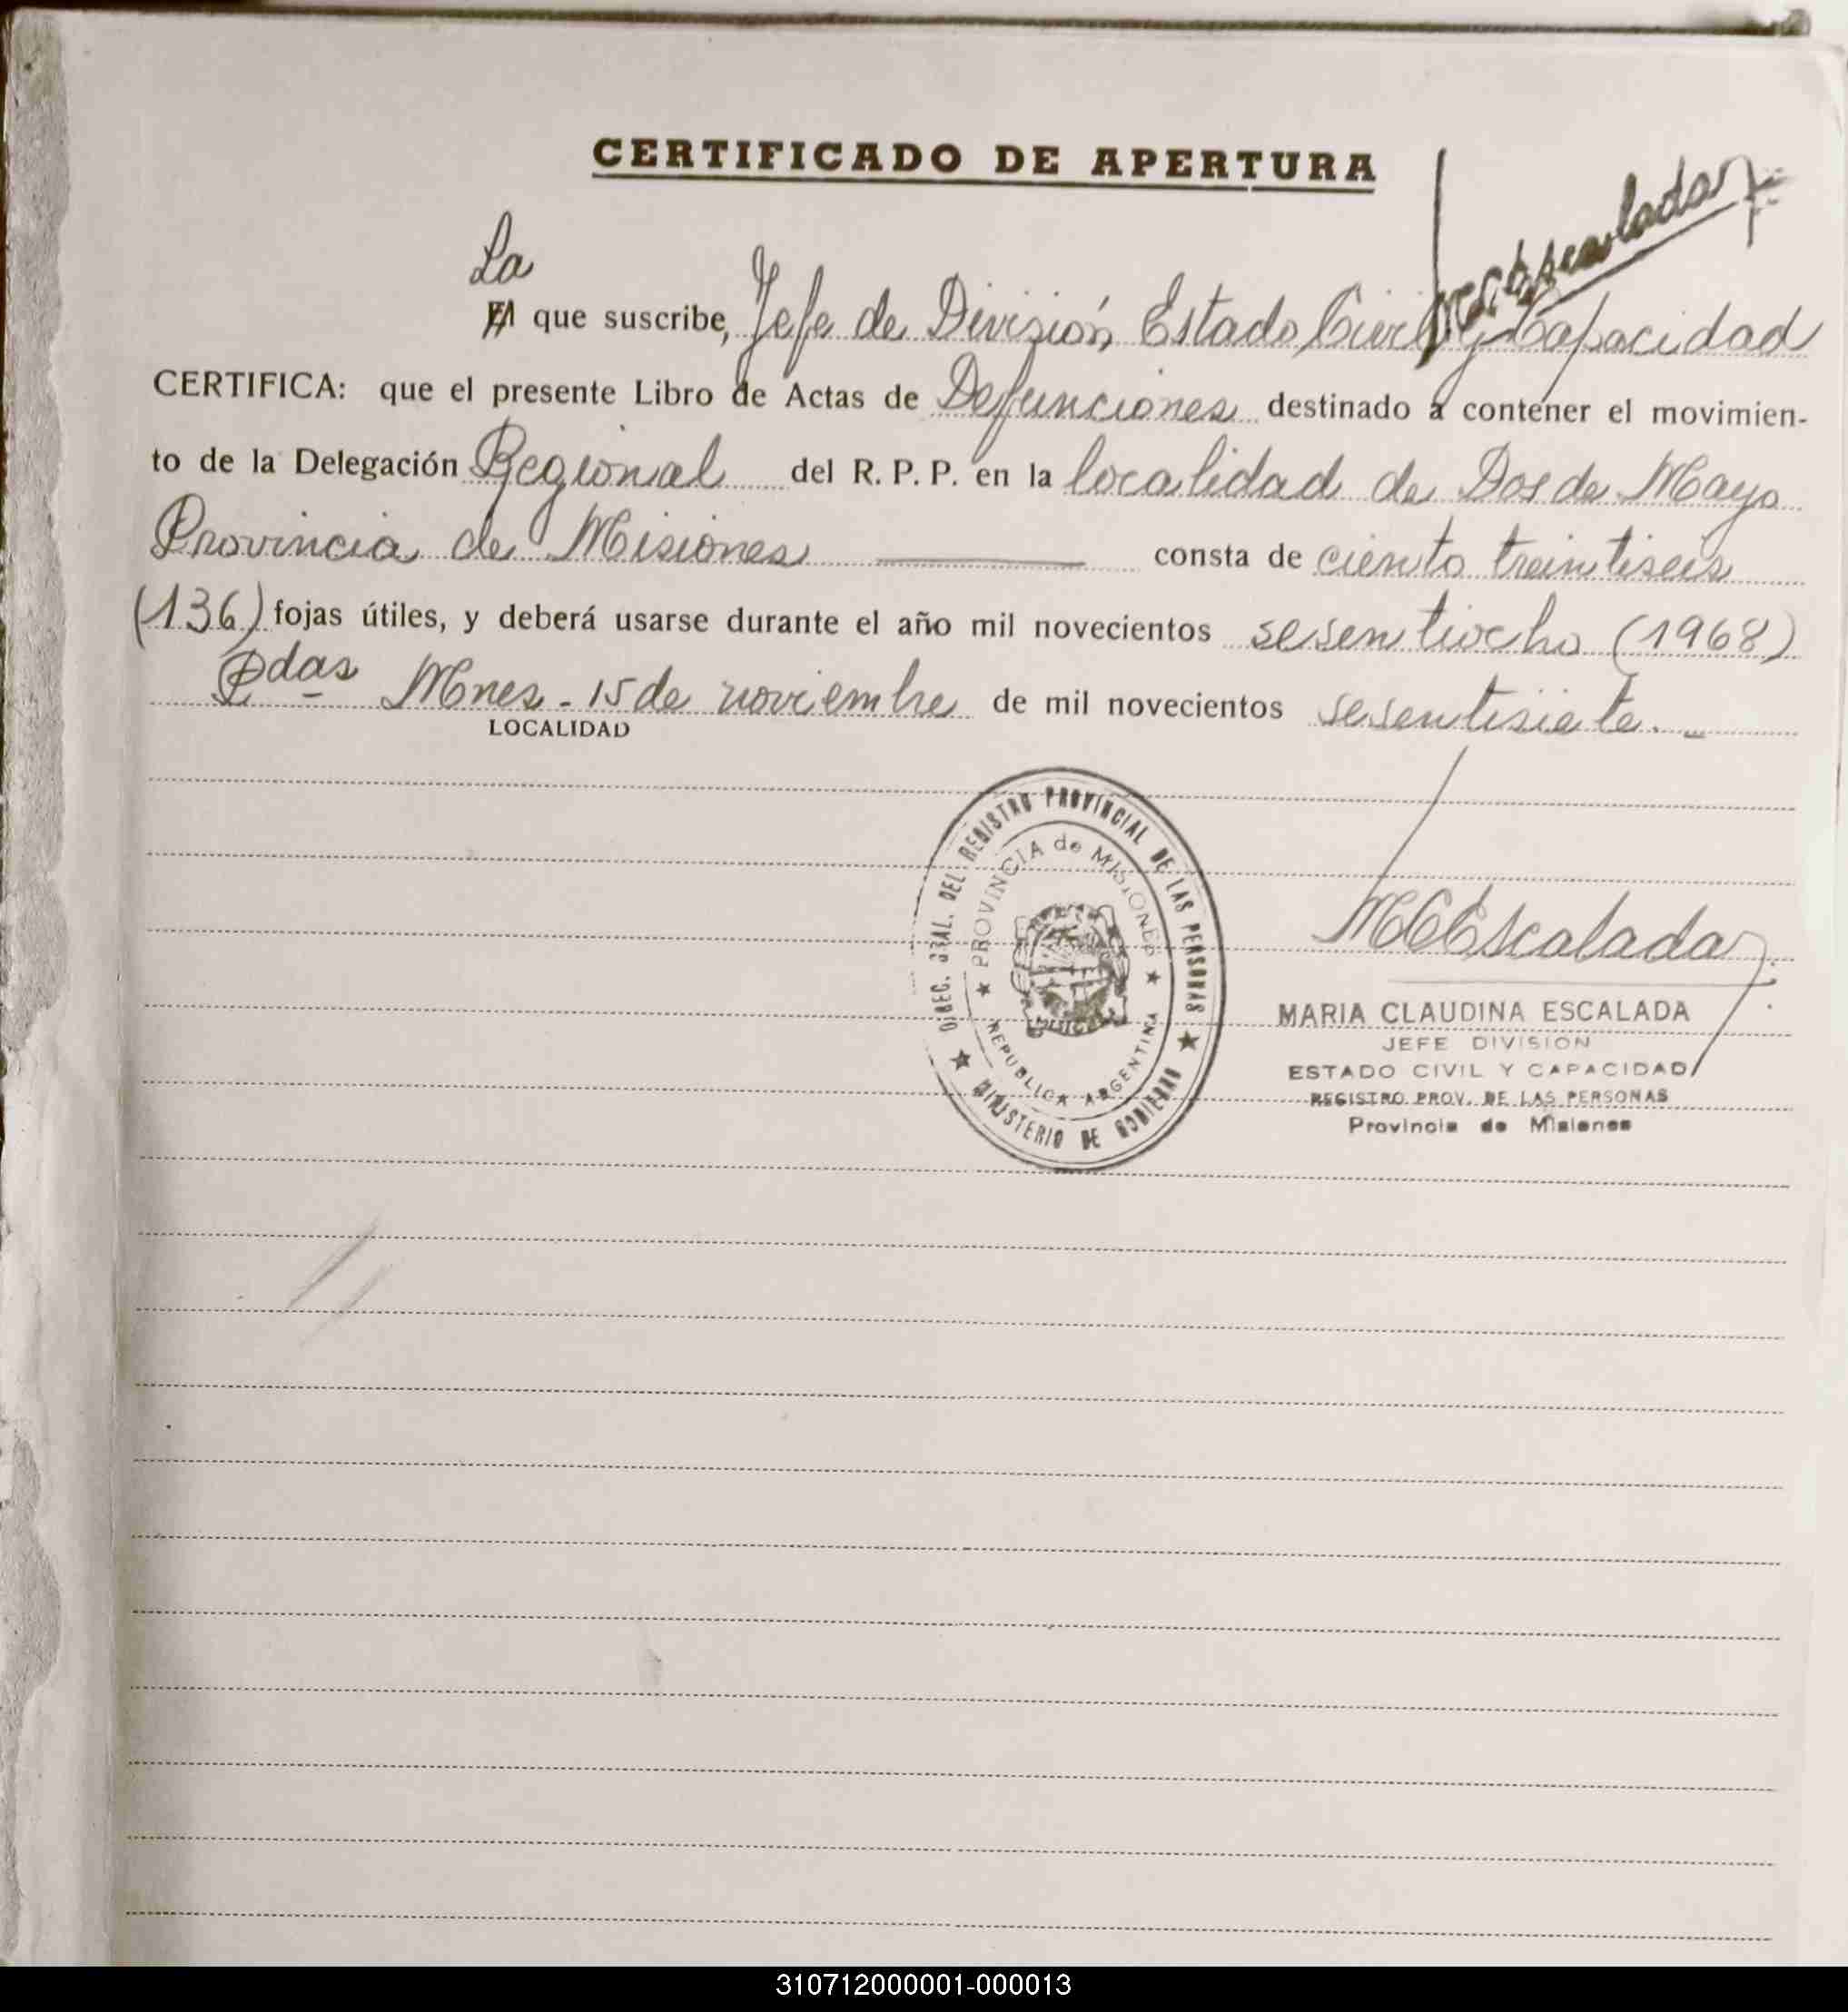 CERTIFICADO DE APERTURA
MCEscalada
La
El que suscribe, Jefe de División Estado Civil y Capacidad
CERTIFICA: que el presente Libro de Actas de Defunciones destinado a contener el movimien-
to de la Delegación Regional del R. P. P. en la localidad de Dos de Mayo
Provincia de Misiones consta de ciento treintiseis
(136) fojas útiles, y deberá usarse durante el año mil novecientos sesentiocho (1968)
Pdas Mnes - 15 de noviembre de mil novecientos sesentisiete. -
LOCALIDAD
DIREC. GRAL. DEL REGISTRO PROVINCIAL DE LAS PERSONAS
★ MINISTERIO DE GOBIERNO ★
★ PROVINCIA de MISIONES ★
REPUBLICA ARGENTINA
MCEscalada
MARIA CLAUDINA ESCALADA
JEFE DIVISION
ESTADO CIVIL Y CAPACIDAD
REGISTRO PROV. DE LAS PERSONAS
Provincia de Misiones
310712000001-000013